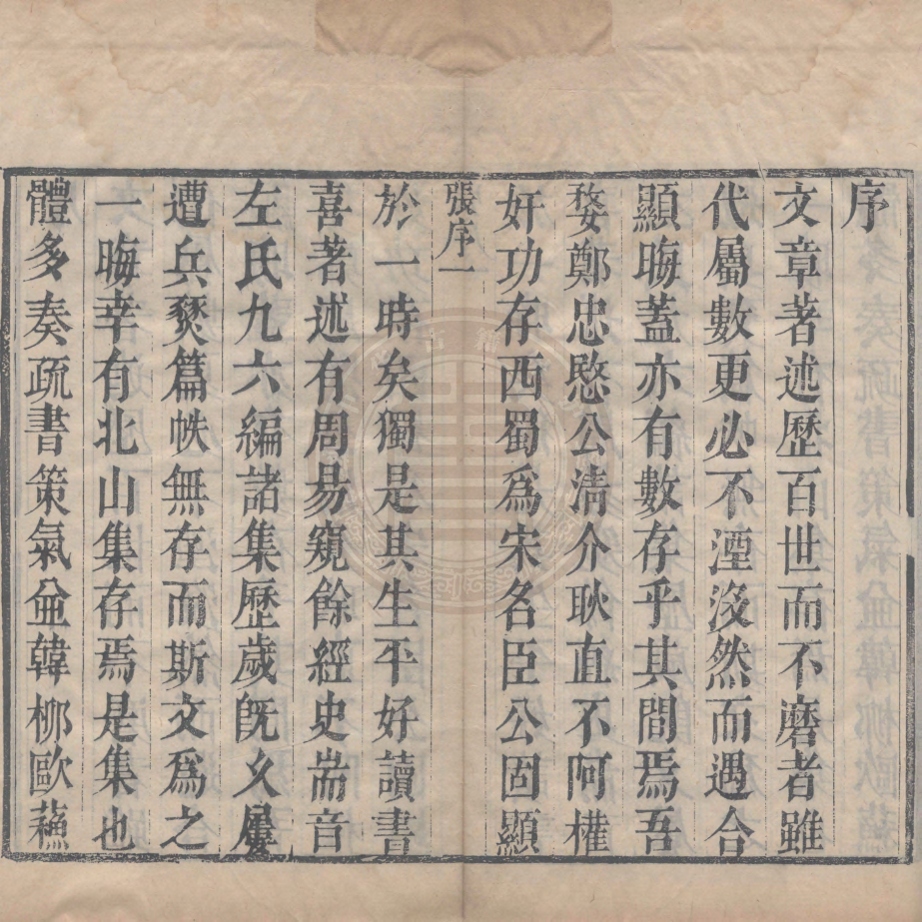 序
文章著述歷百世而不磨者雖
代屬數更必不湮沒然而遇合
顯晦蓋亦有數存乎其間焉吾
婺鄭忠愍公清介耿直不阿權
奸功存西蜀爲宋名臣公固顯
張序一
於一時矣獨是其生平好讀書
喜著述有周易窺餘經史耑音
左氏九六編諸集歷歲旣久屢
遭兵燹篇帙無存而斯文爲之
一晦幸有北山集存焉是集也
體多奏疏書策氣㒰韓柳歐蘓